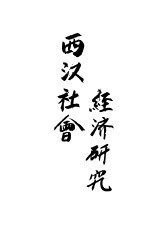 西汉社會
经济研究